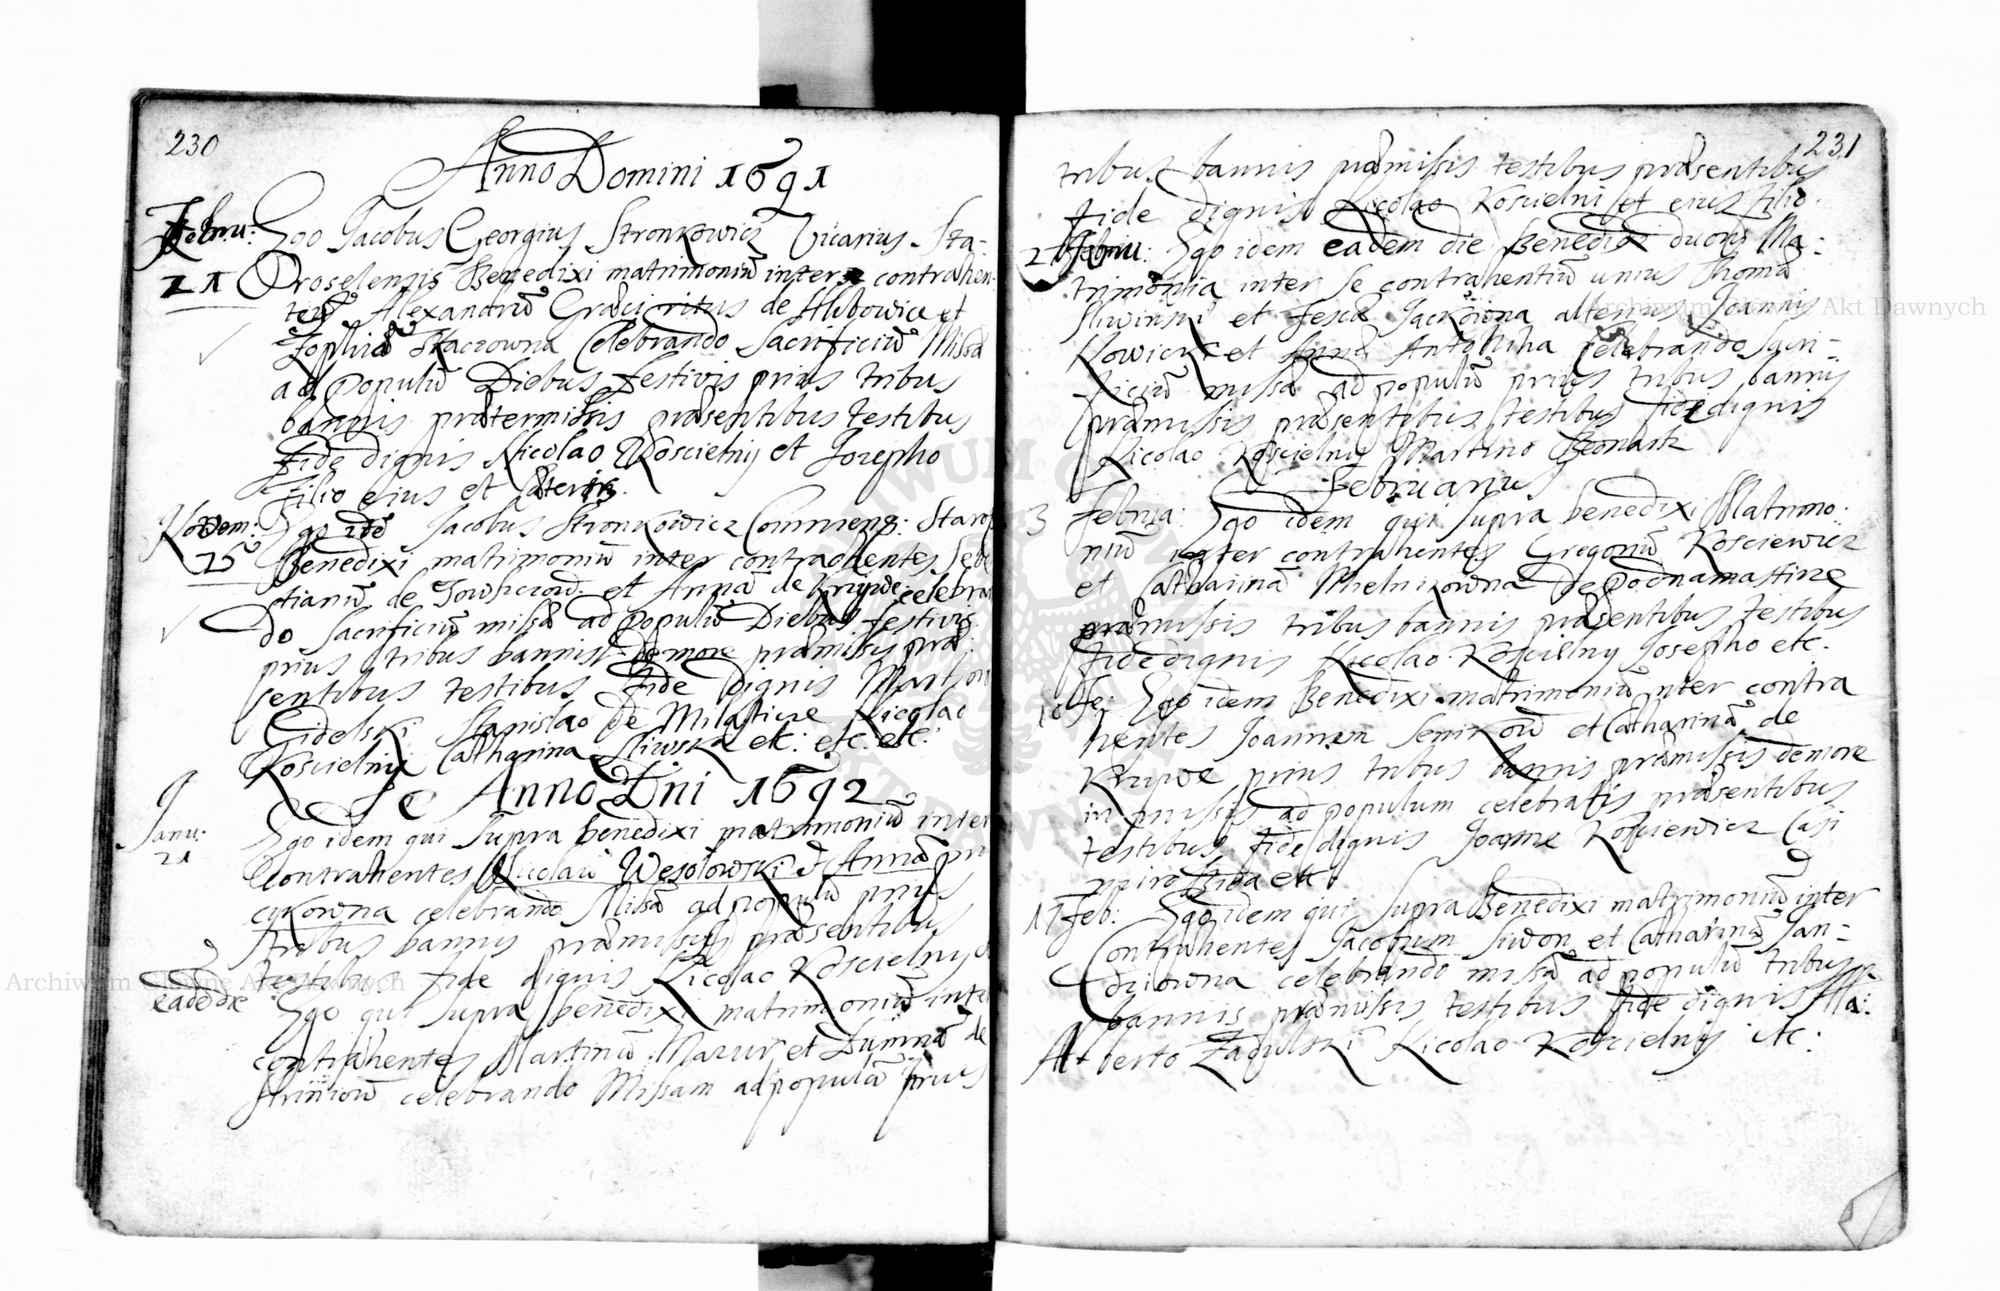 230
Anno Domini 1691
Febru: Ego Jacobus Georgius Stronkowicz Vicarius Sta-
21 Oroselensis Benedixi matrimoniū inter contrahen-
tes Alexandrū Græci ritus de Hlibowice et
Zophiā Skaczowna Celebrando Sacrificiū Missæ
ad populū Diebus festivis prius tribus
bannis prætermissis præsentibus testibus
fide dignis Nicolao Koscielny et Josepho
filio eius et cæteris.
Novem: Ego idē Jacobus Stronkowicz Commens: Staros
25 Benedixi matrimoniū inter contrahentes Seba
stianū de et Annā de Krupce celebran
do Sacrificiū missæ ad populū Diebus festivis
prius tribus bannis de more præmissis præ
sentibus testibus fide dignis Martino
Cidelski Stanislao de Milaticze Nicolao
Koscielny Catharina Sliwska etc: etc: etc:
Anno Dni 1692
Janu: Ego idem qui supra benedixi matrimoniū inter
21 Contrahentes Nicolaū Wesolowski et Annā
cykowna celebrando Missā ad populū prius
tribus bannis præmissis præsentibus
testibus fide dignis Nicolao Koscielny
eadē die Ego qui supra benedixi matrimoniū inter
contrahentes Martinū Mazur et de
celebrando Missam ad populū prius
231
tribus bannis præmissis testibus præsentibus
fide dignis Nicolao Koscielni et eius filio.
2 Febru: Ego idem eadem die Benedixi duo Ma-
trimonia inter se contrahentiū unius Thomæ
Sliwinski et alterius Joannis
Kowicz et Anna Antonina celebrando Sacri-
ficiū missæ ad populū prius tribus bannis
præmissis præsentibus testibus fide dignis
Nicolao Koscielny Martino
Februarius
3 Februa: Ego idem qui supra benedixi Matrimo-
niū inter contrahentes Gregoriū Kosciewicz
et Catharinā Mielnikowna de Podnamastire
præmissis tribus bannis præsentibus testibus
fide dignis Nicolao Koscielny Josepho etc.
10 Fe: Ego idem Benedixi matrimoniū inter contra
hentes Joannem Senikow et Catharinā de
Krupce prius tribus bannis præmissis de more
in missis ad populum celebratis præsentibus
testibus fide dignis Joanne Kosciewicz Casi
miro etc.
17 Feb: Ego idem qui supra Benedixi matrimoniū inter
Contrahentes Jacobum Siwon et Catharinā Jan-
driowna celebrando missā ad populū tribus
bannis præmissis testibus fide dignis
Alberto Zagulski Nicolao Koscielny etc:
Archiwum Główne Akt Dawnych
Archiwum Główne Akt Dawnych